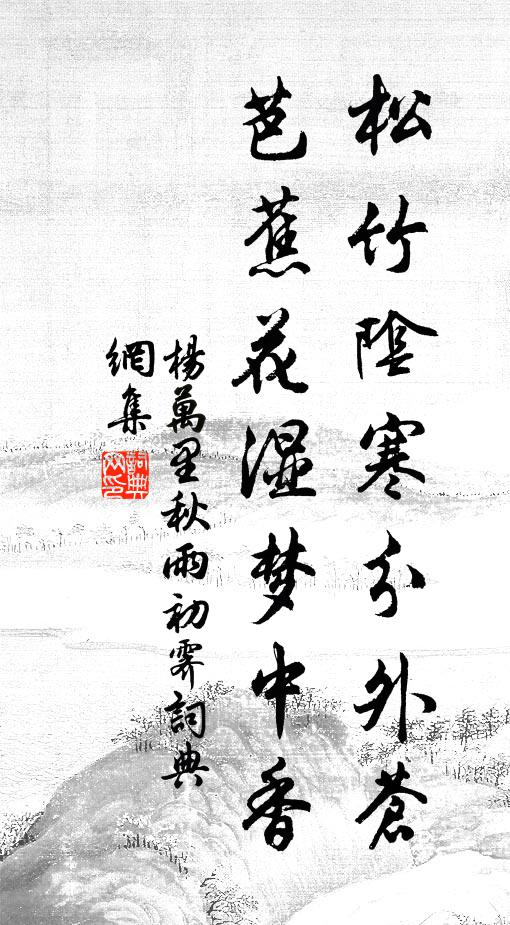 松竹陰寒分外蒼
芭蕉花湿梦中香
楊萬里秋雨初霽詞典
網集
詞典
网印